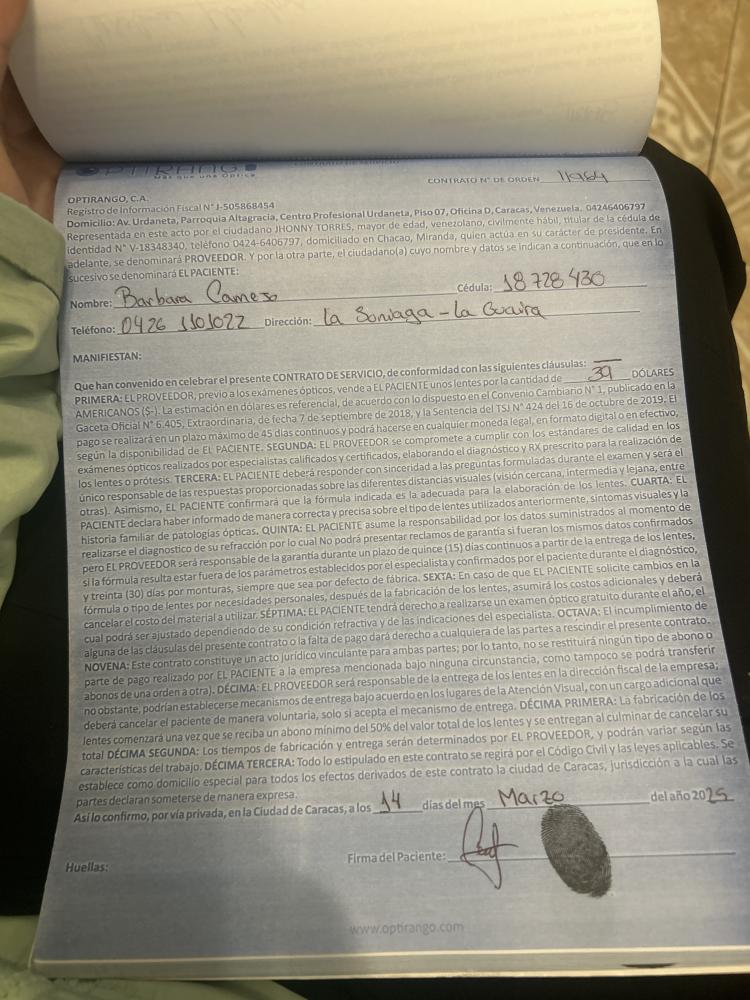 OPTIRANGO
Más que una Óptica
CONTRATO DE SERVICIO
CONTRATO N° DE ORDEN 11964
OPTIRANGO, C.A.
Registro de Información Fiscal N° J-505868454
Domicilio: Av. Urdaneta, Parroquia Altagracia, Centro Profesional Urdaneta, Piso 07, Oficina D, Caracas, Venezuela. 04246406797
Representada en este acto por el ciudadano JHONNY TORRES, mayor de edad, venezolano, civilmente hábil, titular de la cédula de
identidad N° V-18348340, teléfono 0424-6406797, domiciliado en Chacao, Miranda, quien actúa en su carácter de presidente. En
adelante, se denominará PROVEEDOR. Y por la otra parte, el ciudadano(a) cuyo nombre y datos se indican a continuación, que en lo
sucesivo se denominará EL PACIENTE:
Nombre: Barbara Camejo Cédula: 18728430
Teléfono: 0426 1101022 Dirección: la Soriaga - La Guaira
MANIFIESTAN:
Que han convenido en celebrar el presente CONTRATO DE SERVICIO, de conformidad con las siguientes cláusulas:
PRIMERA: EL PROVEEDOR, previo a los exámenes ópticos, vende a EL PACIENTE unos lentes por la cantidad de 39 DÓLARES
AMERICANOS ($-). La estimación en dólares es referencial, de acuerdo con lo dispuesto en el Convenio Cambiario N° 1, publicado en la
Gaceta Oficial N° 6.405, Extraordinaria, de fecha 7 de septiembre de 2018, y la Sentencia del TSJ N° 424 del 16 de octubre de 2019. El
pago se realizará en un plazo máximo de 45 días continuos y podrá hacerse en cualquier moneda legal, en formato digital o en efectivo,
según la disponibilidad de EL PACIENTE. SEGUNDA: EL PROVEEDOR se compromete a cumplir con los estándares de calidad en los
exámenes ópticos realizados por especialistas calificados y certificados, elaborando el diagnóstico y RX prescrito para la realización de
los lentes o prótesis. TERCERA: EL PACIENTE deberá responder con sinceridad a las preguntas formuladas durante el examen y será el
único responsable de las respuestas proporcionadas sobre las diferentes distancias visuales (visión cercana, intermedia y lejana, entre
otras). Asimismo, EL PACIENTE confirmará que la fórmula indicada es la adecuada para la elaboración de los lentes. CUARTA: EL
PACIENTE declara haber informado de manera correcta y precisa sobre el tipo de lentes utilizados anteriormente, síntomas visuales y la
historia familiar de patologías ópticas. QUINTA: EL PACIENTE asume la responsabilidad por los datos suministrados al momento de
realizarse el diagnostico de su refracción por lo cual No podrá presentar reclamos de garantía si fueran los mismos datos confirmados
pero EL PROVEEDOR será responsable de la garantía durante un plazo de quince (15) días continuos a partir de la entrega de los lentes,
si la fórmula resulta estar fuera de los parámetros establecidos por el especialista y confirmados por el paciente durante el diagnóstico,
y treinta (30) días por monturas, siempre que sea por defecto de fábrica. SEXTA: En caso de que EL PACIENTE solicite cambios en la
fórmula o tipo de lentes por necesidades personales, después de la fabricación de los lentes, asumirá los costos adicionales y deberá
cancelar el costo del material a utilizar. SÉPTIMA: EL PACIENTE tendrá derecho a realizarse un examen óptico gratuito durante el año, el
cual podrá ser ajustado dependiendo de su condición refractiva y de las indicaciones del especialista. OCTAVA: El incumplimiento de
alguna de las cláusulas del presente contrato o la falta de pago dará derecho a cualquiera de las partes a rescindir el presente contrato.
NOVENA: Este contrato constituye un acto jurídico vinculante para ambas partes; por lo tanto, no se restituirá ningún tipo de abono o
parte de pago realizado por EL PACIENTE a la empresa mencionada bajo ninguna circunstancia, como tampoco se podrá transferir
abonos de una orden a otra). DÉCIMA: EL PROVEEDOR será responsable de la entrega de los lentes en la dirección fiscal de la empresa;
no obstante, podrían establecerse mecanismos de entrega bajo acuerdo en los lugares de la Atención Visual, con un cargo adicional que
deberá cancelar el paciente de manera voluntaria, solo si acepta el mecanismo de entrega. DÉCIMA PRIMERA: La fabricación de los
lentes comenzará una vez que se reciba un abono mínimo del 50% del valor total de los lentes y se entregan al culminar de cancelar su
total DÉCIMA SEGUNDA: Los tiempos de fabricación y entrega serán determinados por EL PROVEEDOR, y podrán variar según las
características del trabajo. DÉCIMA TERCERA: Todo lo estipulado en este contrato se regirá por el Código Civil y las leyes aplicables. Se
establece como domicilio especial para todos los efectos derivados de este contrato la ciudad de Caracas, jurisdicción a la cual las
partes declaran someterse de manera expresa.
Así lo confirmo, por vía privada, en la Ciudad de Caracas, a los 14 días del mes Marzo del año 2025
Firma del Paciente:
Huellas:
www.optirango.com